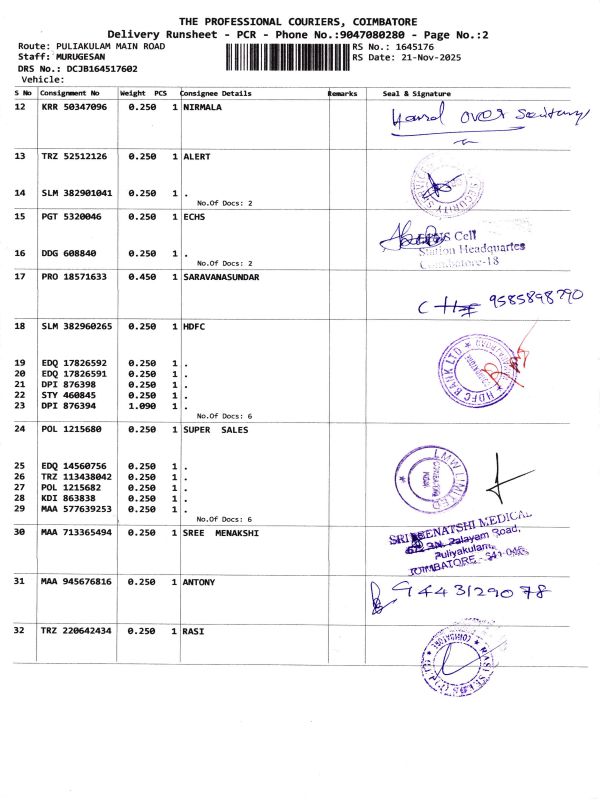 THE PROFESSIONAL COURIERS, COIMBATORE
Delivery Runsheet - PCR - Phone No.:9047080280 - Page No.:2
Route: PULIAKULAM MAIN ROAD RS No.: 1645176
Staff: MURUGESAN RS Date: 21-Nov-2025
DRS No.: DCJB164517602
Vehicle:
S No Consignment No Weight PCS Consignee Details Remarks Seal & Signature
12 KRR 50347096 0.250 1 NIRMALA
Hand over
13 TRZ 52512126 0.250 1 ALERT
14 SLM 382901041 0.250 1 .
No.Of Docs: 2
SECURITY
15 PGT 5320046 0.250 1 ECHS
16 DDG 608840 0.250 1 .
No.Of Docs: 2
Cell
Station Headquarters
Coimbatore-18
17 PRO 18571633 0.450 1 SARAVANASUNDAR
9585898790
18 SLM 382960265 0.250 1 HDFC
19 EDQ 17826592 0.250 1 .
20 EDQ 17826591 0.250 1 .
21 DPI 876398 0.250 1 .
22 STY 460845 0.250 1 .
23 DPI 876394 1.090 1 .
No.Of Docs: 6
HDFC BANK LTD
24 POL 1215680 0.250 1 SUPER SALES
25 EDQ 14560756 0.250 1 .
26 TRZ 113438042 0.250 1 .
27 POL 1215682 0.250 1 .
28 KDI 863838 0.250 1 .
29 MAA 577639253 0.250 1 .
No.Of Docs: 6
LMW LIMITED
COIMBATORE
30 MAA 713365494 0.250 1 SREE MENAKSHI
SRI MEENATSHI MEDICAL
Palayam Road,
Puliyakulam,
COIMBATORE - 641 045
31 MAA 945676816 0.250 1 ANTONY
9443129078
32 TRZ 220642434 0.250 1 RASI
COIMBATORE
RASI SEEDS